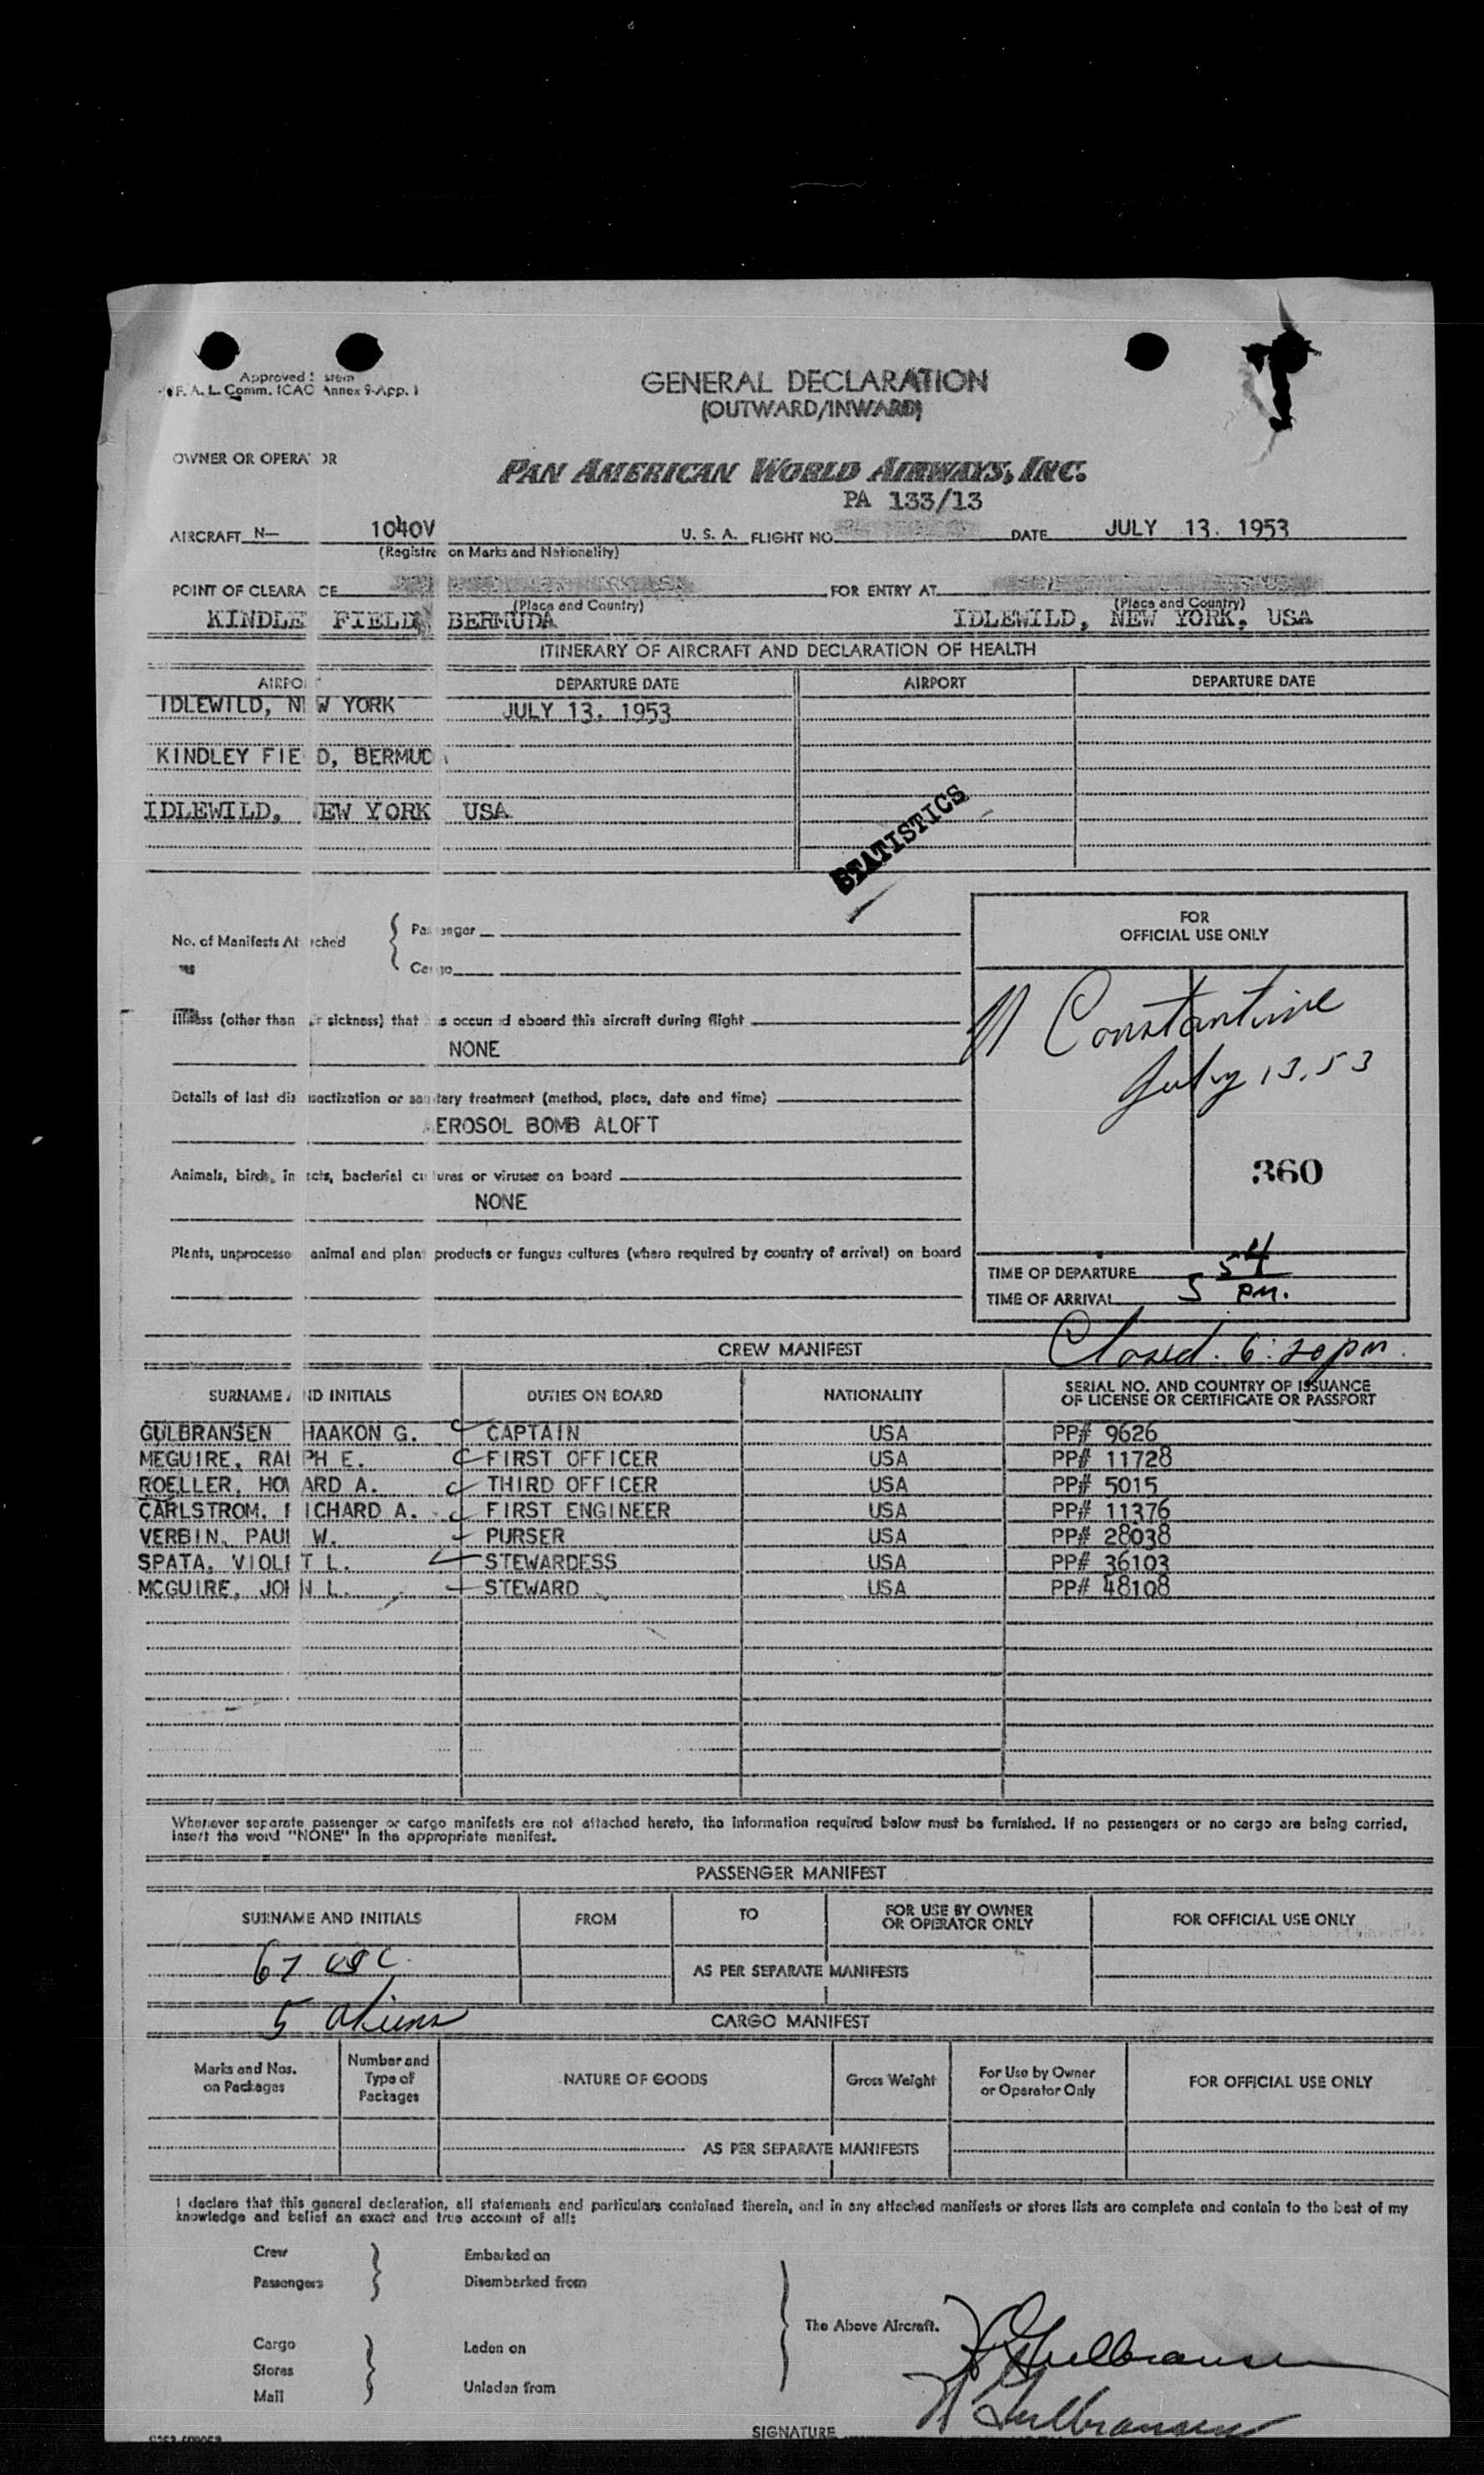 Approved System
F. A. L. Comm. ICAO Annex 9-App. 1
GENERAL DECLARATION
(OUTWARD/INWARD)
OWNER OR OPERATOR
PAN AMERICAN WORLD AIRWAYS, INC.
PA 133/13
AIRCRAFT N— 1040V U. S. A. FLIGHT NO. DATE JULY 13. 1953
(Registre on Marks and Nationality)
POINT OF CLEARA CE FOR ENTRY AT
(Place and Country) (Place and Country)
KINDLE FIELD, BERMUDA IDLEWILD, NEW YORK, USA
ITINERARY OF AIRCRAFT AND DECLARATION OF HEALTH
AIRPORT DEPARTURE DATE AIRPORT DEPARTURE DATE
IDLEWILD, NEW YORK JULY 13. 1953
KINDLEY FIE D, BERMUD
IDLEWILD, EW YORK USA
STATISTICS
No. of Manifests At ched
Passenger
Cargo
FOR
OFFICIAL USE ONLY
Illness (other than r sickness) that s occurred aboard this aircraft during flight
NONE
Constantine
July 13, 53
Details of last dis sectization or sanitary treatment (method, place, date and time)
EROSOL BOMB ALOFT
Animals, birds, in ects, bacterial cultures or viruses on board
NONE
360
Plants, unprocesse animal and plant products or fungus cultures (where required by country of arrival) on board
TIME OF DEPARTURE
TIME OF ARRIVAL 5 54 pm.
Closed. 6:20 pm.
CREW MANIFEST
SURNAME AND INITIALS DUTIES ON BOARD NATIONALITY SERIAL NO. AND COUNTRY OF ISSUANCE
OF LICENSE OR CERTIFICATE OR PASSPORT
GULBRANSEN HAAKON G. CAPTAIN USA PP# 9626
MEGUIRE, RALPH E. FIRST OFFICER USA PP# 11728
ROELLER, HOWARD A. THIRD OFFICER USA PP# 5015
CARLSTROM. RICHARD A. FIRST ENGINEER USA PP# 11376
VERBIN, PAUL W. PURSER USA PP# 28038
SPATA, VIOLET L. STEWARDESS USA PP# 36103
MCGUIRE, JOHN L. STEWARD USA PP# 48108
Whenever separate passenger or cargo manifests are not attached hereto, the information required below must be furnished. If no passengers or no cargo are being carried,
insert the word "NONE" in the appropriate manifest.
PASSENGER MANIFEST
SURNAME AND INITIALS FROM TO FOR USE BY OWNER
OR OPERATOR ONLY FOR OFFICIAL USE ONLY
67 USC
AS PER SEPARATE MANIFESTS
5 aliens
CARGO MANIFEST
Marks and Nos.
on Packages
Number and
Type of
Packages
NATURE OF GOODS
Gross Weight
For Use by Owner
or Operator Only
FOR OFFICIAL USE ONLY
AS PER SEPARATE MANIFESTS
I declare that this general declaration, all statements and particulars contained therein, and in any attached manifests or stores lists are complete and contain to the best of my
knowledge and belief an exact and true account of all:
Crew Embarked on
Passengers Disembarked from
The Above Aircraft.
Cargo Laden on
Stores
Mail Unladen from
H Gulbransen
H Gulbransen
SIGNATURE